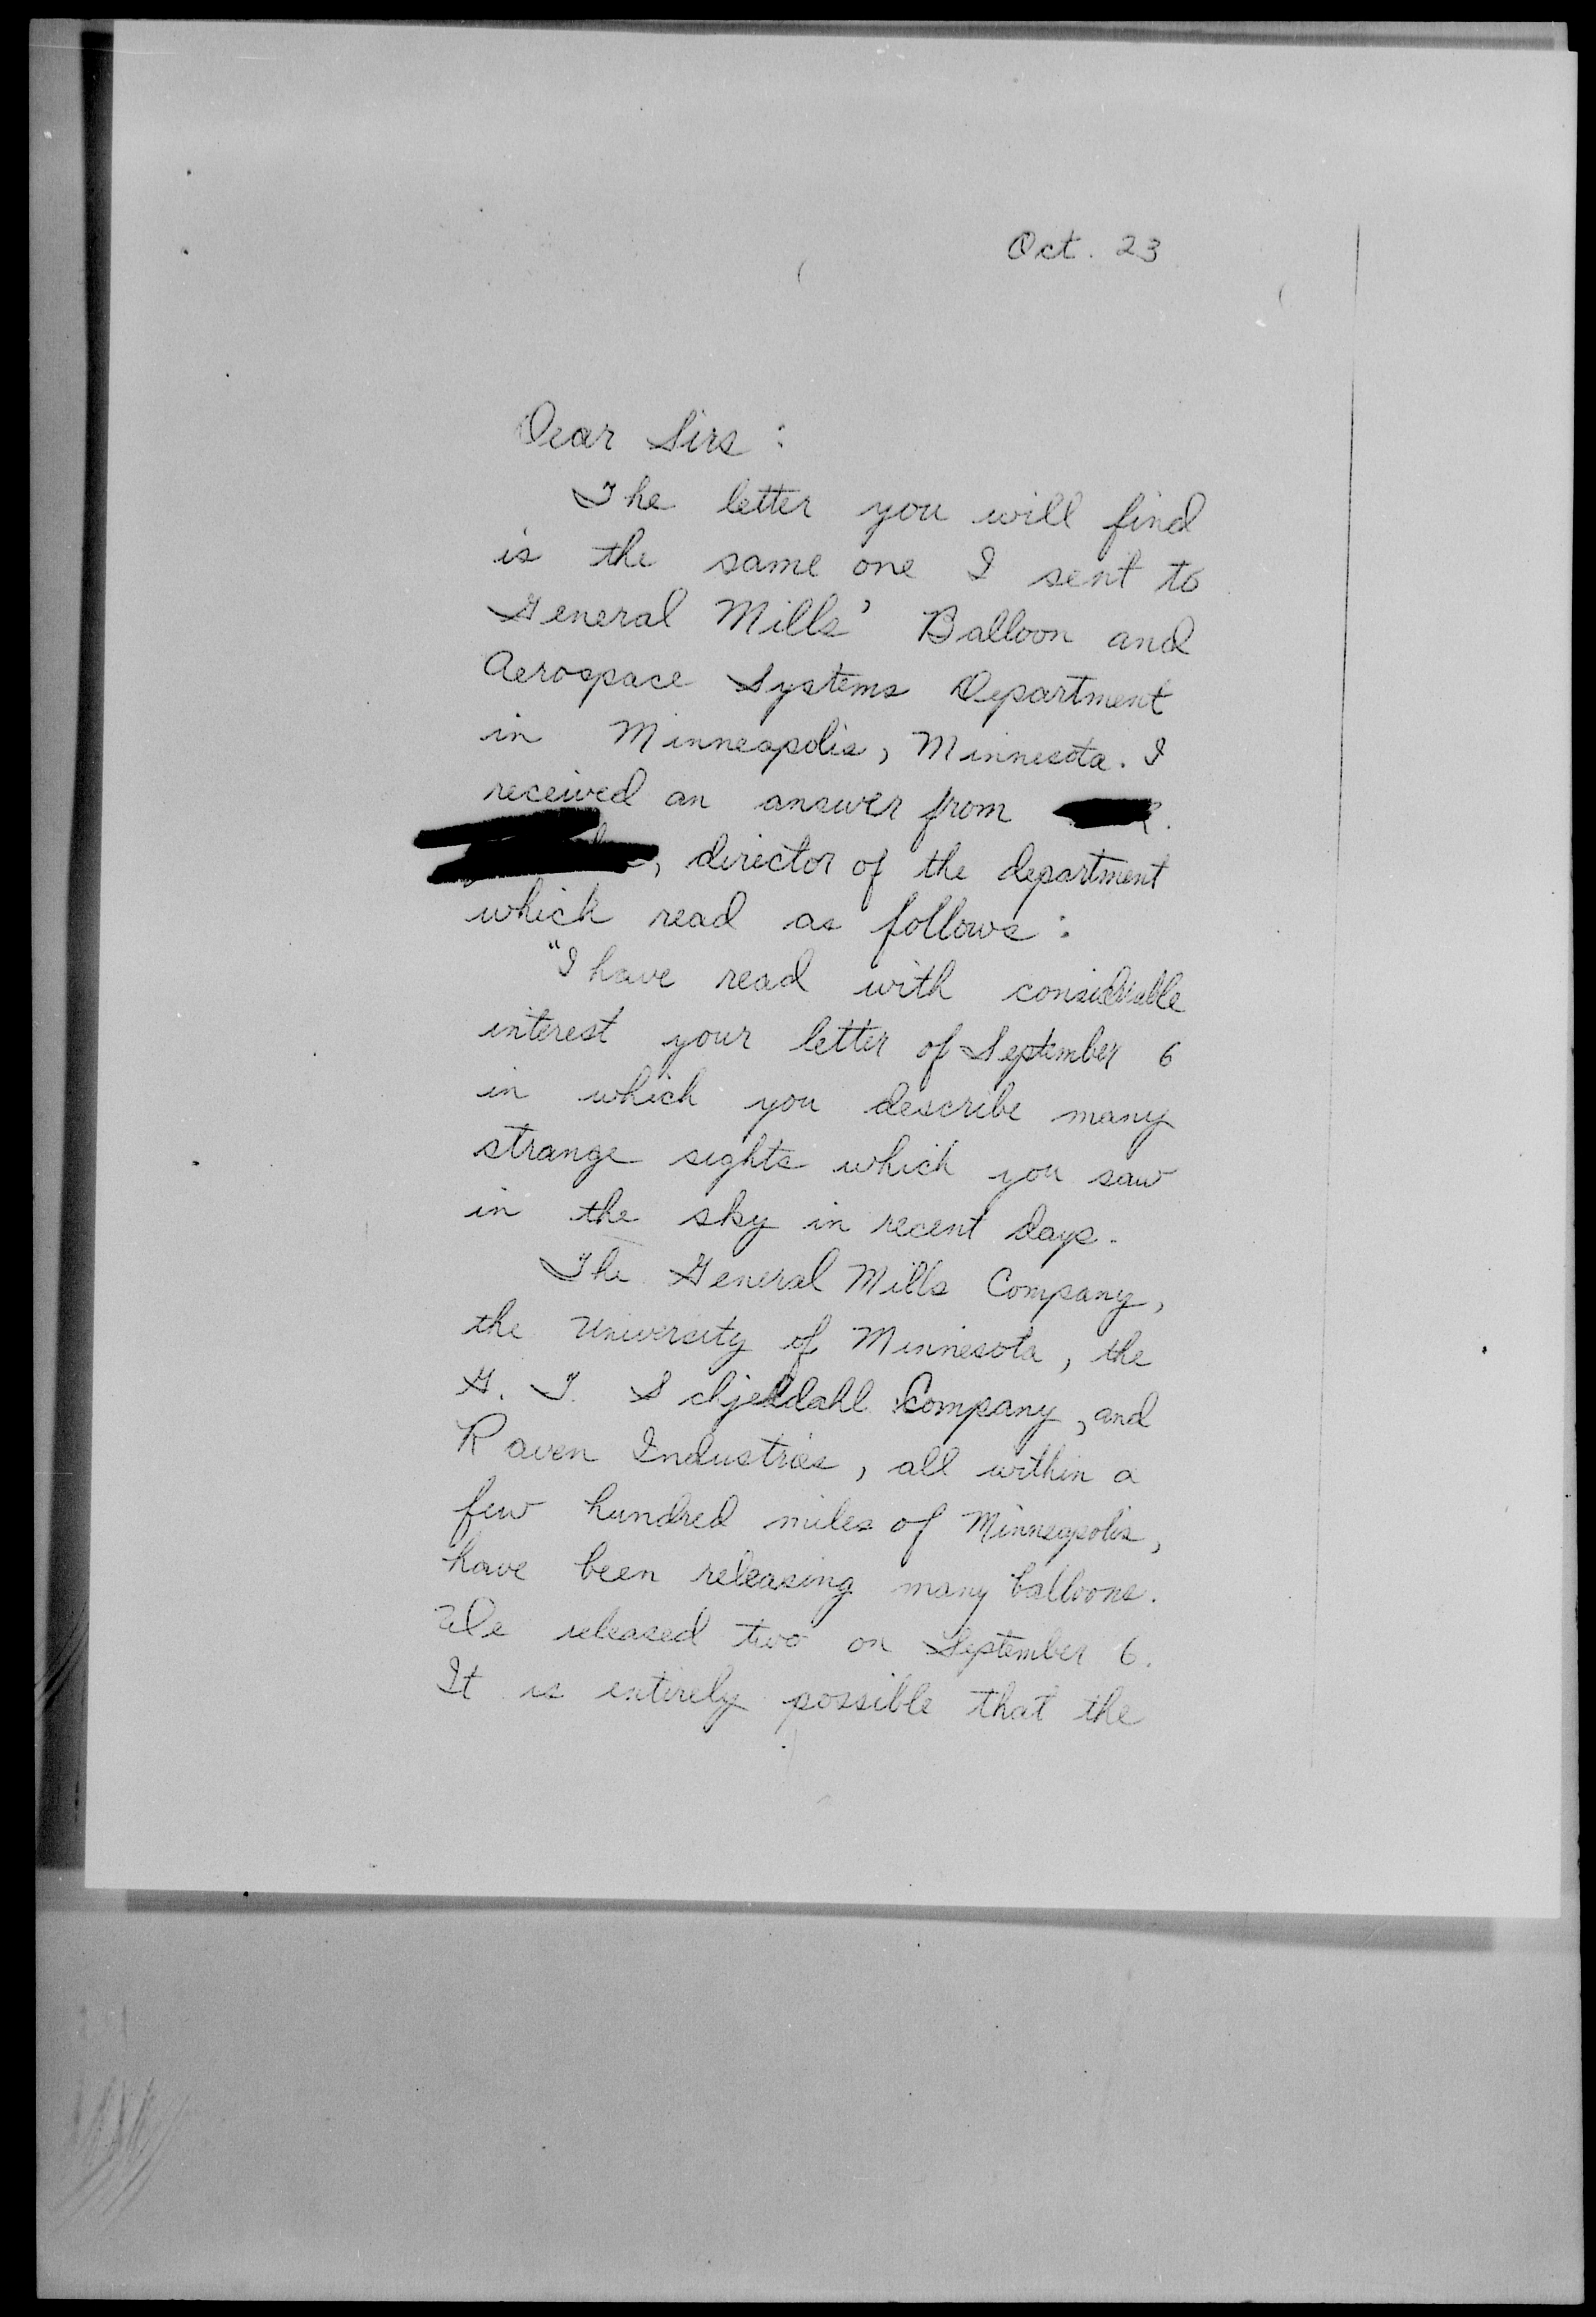 Oct. 23
Dear Sirs:
The letter you will find
is the same one I sent to
General Mills' Balloon and
Aerospace Systems Department
in Minneapolis, Minnesota. I
received an answer from
, director of the department
which read as follows:
"I have read with considerable
interest your letter of September 6
in which you describe many
strange sights which you saw
in the sky in recent days.
The General Mills Company,
the University of Minnesota, the
G. T. Schjeldahl Company, and
Raven Industries, all within a
few hundred miles of Minneapolis,
have been releasing many balloons.
We released two on September 6.
It is entirely possible that the